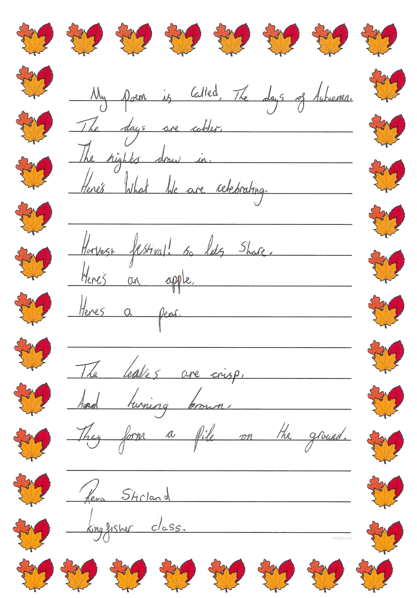 My poem is called, The days of Autumn.
The days are colder,
The nights draw in,
Here's What We are celebrating.
Harvest festival! so lets share.
Heres an apple,
Heres a pear.
The leaves are crisp,
And turning brown.
They form a pile on the ground.
Stirland
kingfisher class.